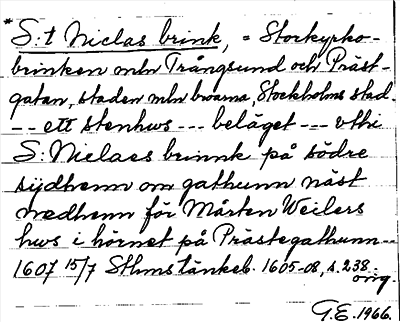 *S:t Niclas brink, = Storkyrko-
brinken mln Trångsund och Präst-
gatan, staden mln broarna, Stockholms stad.
-- ett stenhws --- beläget --- vthi
S: Niclaes brinnk på södre
sijdhenn om gathunn näst
nedhenn för Mårten Weilers
hws i hörnet på Prästegathunn--
1607 15/7 Sthms tänkeb. 1605-08, s. 238
orig.
G.E. 1966.